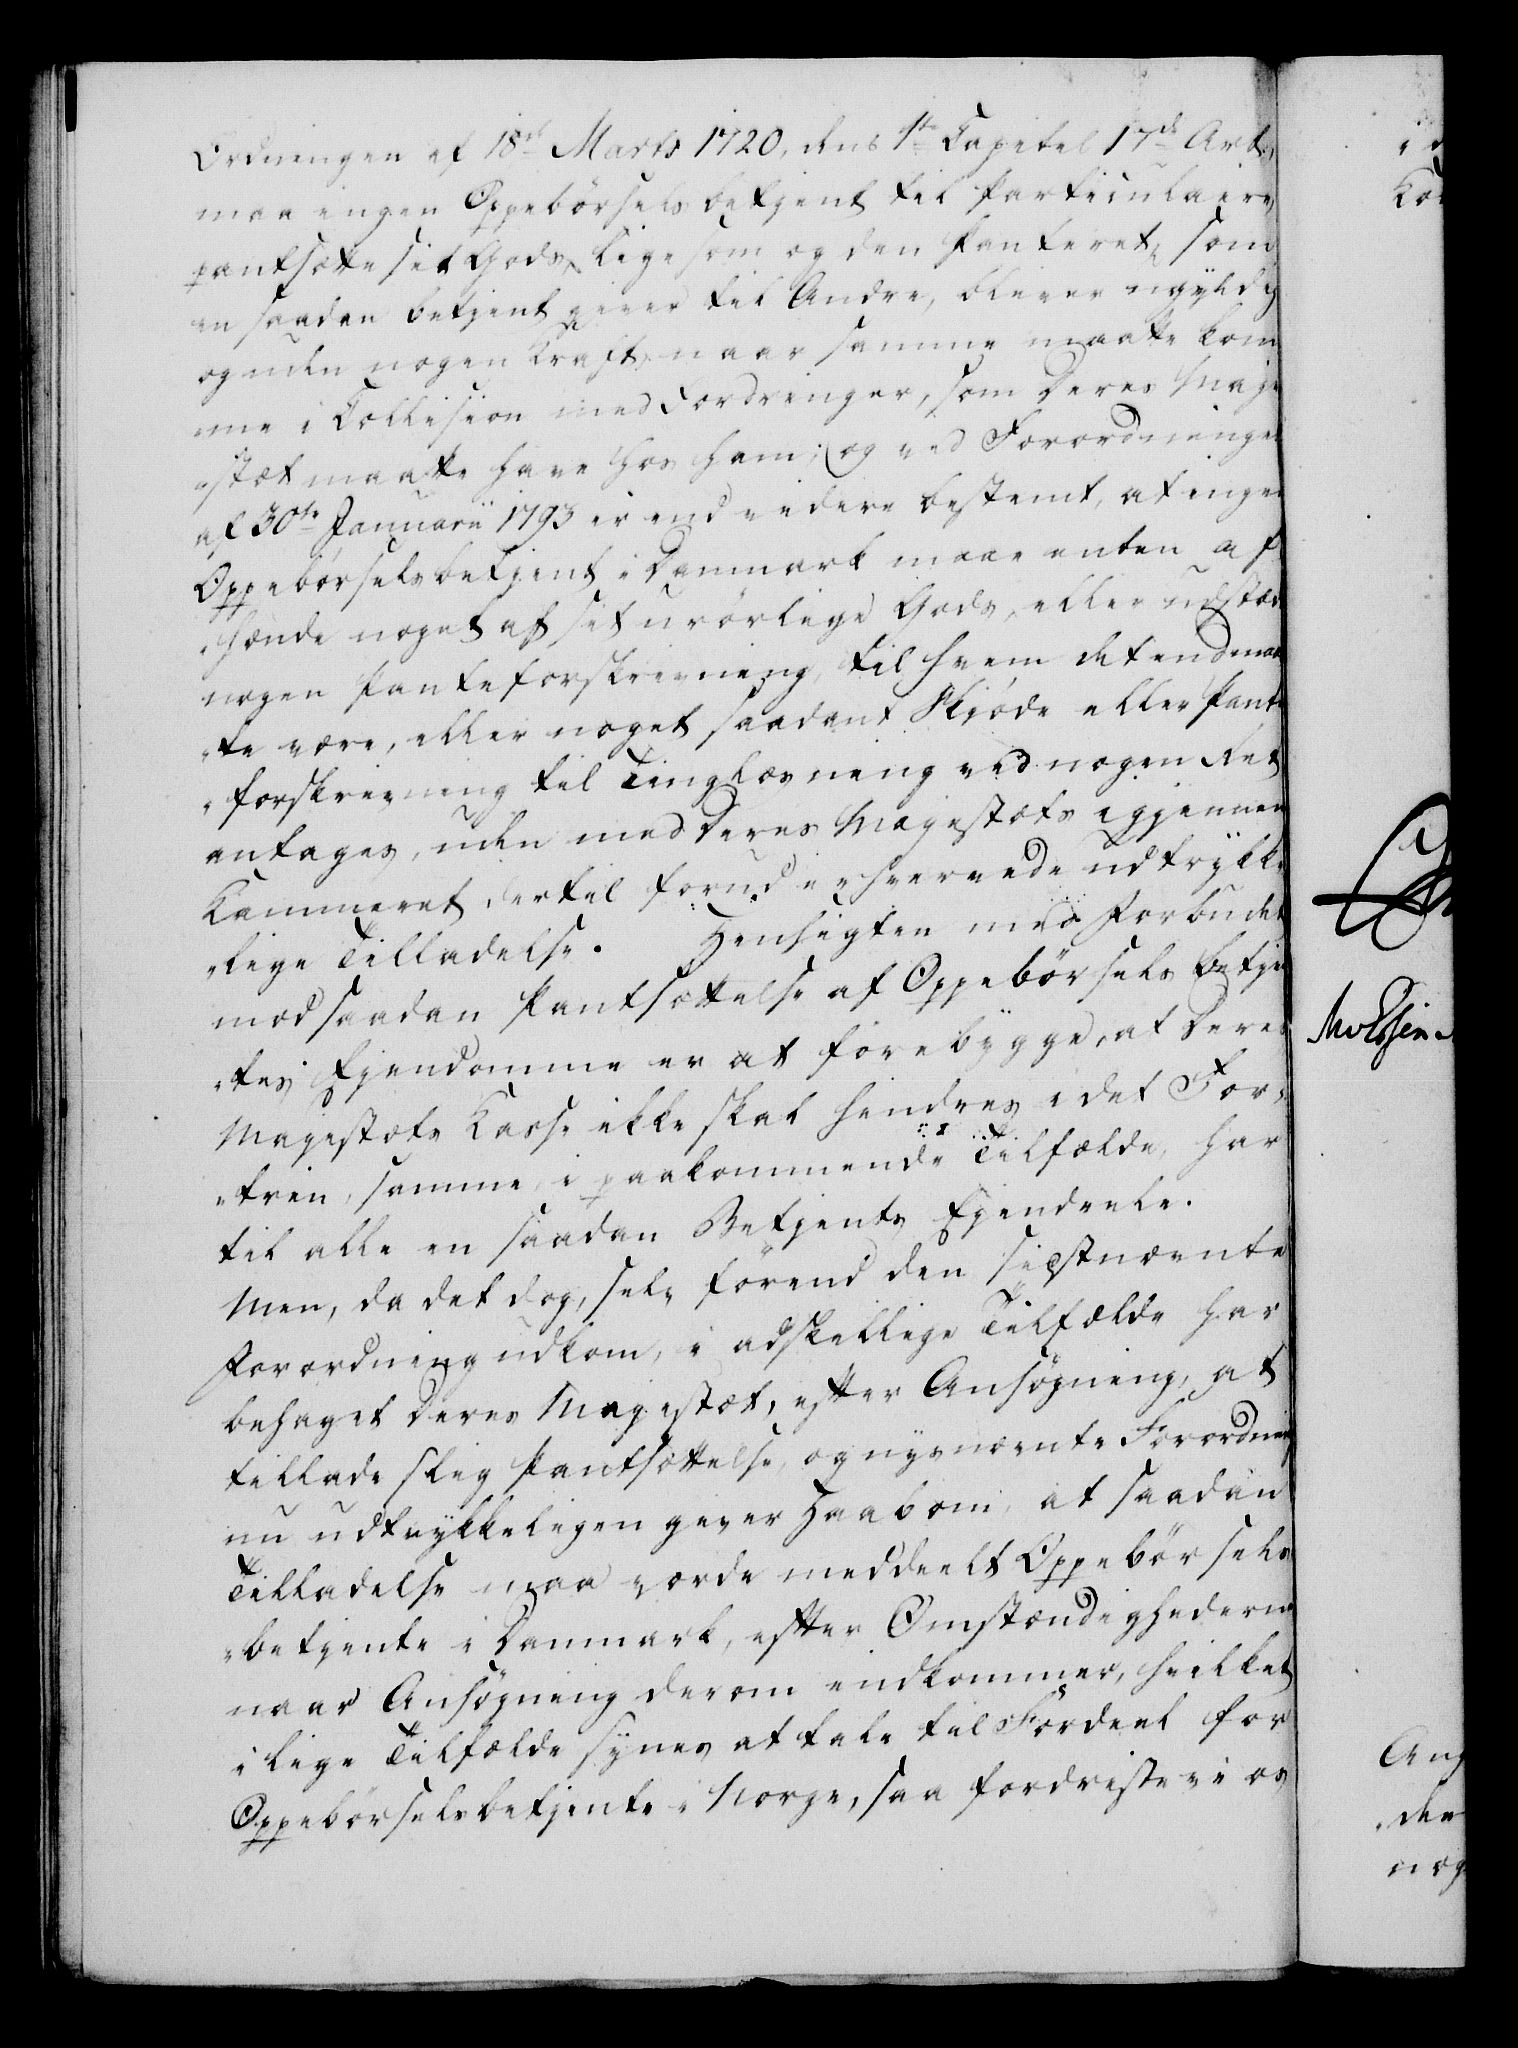 Ordningen af 18de Marts 1720, dens 1te Capitel 17de Art.
maa ingen Oppebörselsbetjent til Particulaire
pantsætte sit Gods, ligesom og den Panteret, som
en saadan betjent giver til Andre, bliver ugyldig
og uden nogen Kraft, naar samme maatte kom
me i Collision med Fordringer, som Deres Maje
stæt maatte have hos ham; og ved Forordningen
af 30te Januarii 1793 er end videre bestemt, at ingen
Oppebörselsbetjent i Danmark maae enten af
hænde noget af sit urörlige Gods, eller udstæde
nogen Panteforskrivning, til hvem det end maat
te være, eller noget saadant Skjöde eller Pante
forskrivning til Tinglæsning ved nogen Ret
antages, uden med Deres Majestæts igjennem
Kammeret dertil forud erhvervede udtrykke
lige Tilladelse. Hensigten med Forbudet
mod saadan Pantsættelse af Oppebörsels betjen
tes Ejendomme er at forebygge, at Deres
Majestæts Kasse ikke skal hindres i det For
trin, samme, i paakommende Tilfælde, har
til alle en saadan Betjents Ejendeele.
Men, da det dog, selv förend den sidstnævnte
Forordning udkom, i adskillige Tilfælde har
behaget Deres Majestæt, efter Ansögning, at
tillade slig Pantsættelse, og nysnævnte Forordning
nu udtrykkeligen giver Haab om, at saadan
Tilladelse maa vorde meddeelt Oppebörsels
betjente i Danmark, efter Omstændighederne
naar Ansögning derom indkommer, hvilket
i lige Tilfælde synes at tale til Fordeel for
Oppebörselsbetjente i Norge, saa fordriste vi os